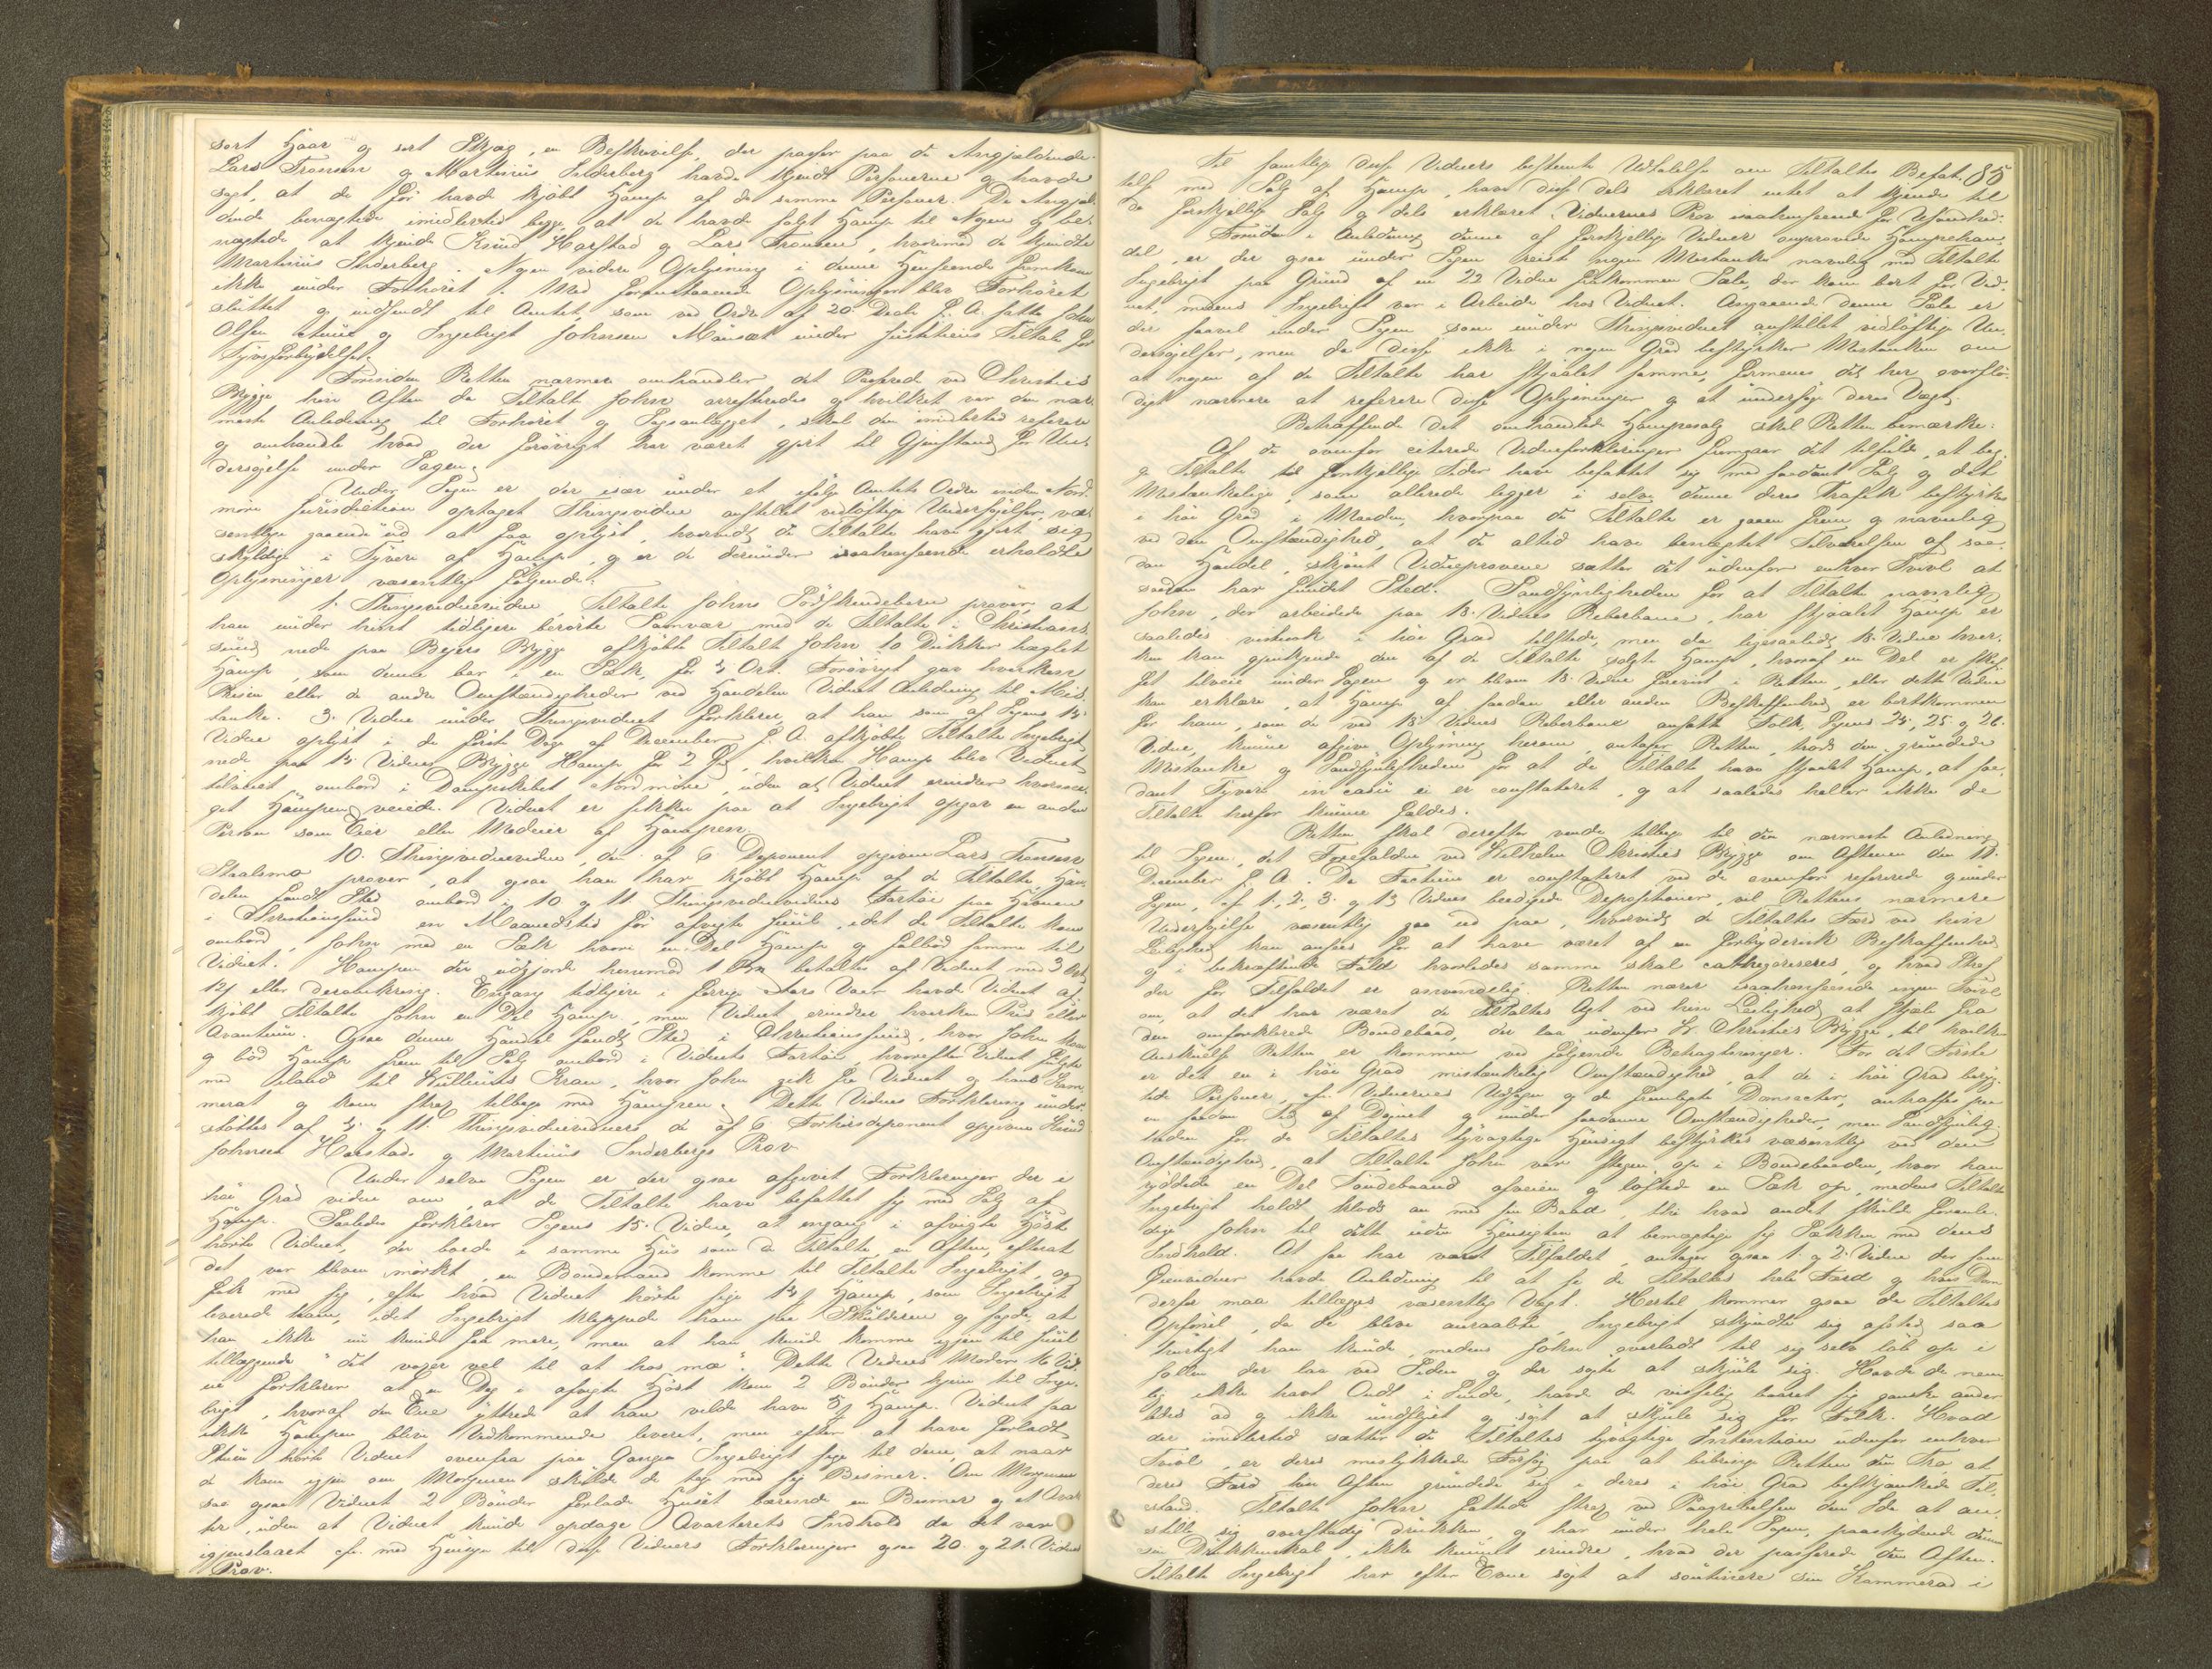 sort Haar og sort Skjæg, en Beskrivelse, der passer paa de Angjældende.
Lars Tronsen og Martinus Inderberg havde kjendt Personerne og havde
sagt, at de før havde kjøbt Hamp af de samme Personer. De Angjæl-
dende benægtede imidlertid begge, at de havde solgt Hamp til Nogen og be-
nægtede at kjende Knud Harstad og Lars Tronsen, hvorimod de kjendte
Martinus Inderberg. Nogen videre Oplysning i denne Henseende fremkom
ikke under Forhøret. Med foranstaaende Oplysninger blev Forhøret
sluttet og indsendt til Amtet, som ved Ordre af 20. Decbr f. A. satte John
Olsen og Ingebrigt Johnsen under Justitiens Tiltale for
Tyvsforbrydelse.
Forinden Retten nærmere omhandler det Passerede ved Christies
Brygge hin Aften da Tiltalte John arresteredes og hvilket var den nær-
meste Anledning til Forhøret og Sagsanlægget, skal den imidlertid referere
og omhandle hvad der forøvrigt har været gjort til Gjenstand for Un-
dersøgelse under Sagen.
Under Sagen er der især under et ifølge Amtets Ordre inden Nord-
møre Jurisdiction optaget Thingsvidne anstillet vidtløftige Undersøgelser, væ-
sentlige gaaende ud at faa oplyst, hvorvidt de Tiltalte have gjort sig
skyldige i Tyveri af Hamp, og er de derunder isaahenseende erholdte
Oplysninger væsentlig følgende:
1. Thingsvidnevidne, Tiltalte Johns Sødskendebarn prøver, at
han under hint tidligere berørte Samvær med de Tiltalte i Christians-
sund nede paa Beyers Brygge afkjøbte Tiltalte John to Dukker heglet
Hamp, som denne bar i en Sæk, for 3 Ort. Forøvrigt gav hverken
Prisen eller de andre Omstændigheder ved Handelen Vidnet Anledning til Mis-
tanke. 3. Vidne under Thingsvidnet forklarer, at han som af Sagens 13.
Vidne oplyst i de første Dage af December f. A. afkjøbte Tiltalte Ingebrigt
nede paa 13. Vidnes Brygge Hamp for 2 Spd, hvilken Hamp blev Vidnet
leveret ombord i Dampskibet Nordmøre, uden at Vidnet erindrer hvorme-
get Hampen veiede. Vidnet er sikker paa at Ingebrigt opgav en anden
Person som Eier eller Medeier af Hampen.
10. Thingsvidnevidne, den af 6. Deponent opgivne Lars Tronsen
prøver, at ogsaa han har kjøbt Hamp af de Tiltalte. Han-
delen fandt Sted ombord i 10 og 11. Thingsvidnevidnes Fartøi paa Havnen
i Christianssund en Maanedstid før afvigte Juul, idet de Tiltalte kom
ombord, John med en Sæk hvori en Del Hamp og falbød samme til
Vidnet. Hampen der udgjorde henimod 1 betaltes af Vidnet med 3 Ort
12 eller deromkring. Engang tidligere i forrige Aars Vaar havde Vidnet af-
kjøbt Tiltalte John en Del Hamp, men Vidnet erindrer hverken Pris eller
Qvantum. Ogsaa denne Handel fandt Sted i Christianssund, hvor John kom
og bød Hamp frem til Salg ombord i Vidnets Fartøi, hvorefter Vidnet fulgte
med iland til Kran, hvor John gik fra Vidnet og hans Kam-
merat og kom strax tilbage med Hampen. Dette Vidnes Forklaring under-
støttes af 3. og 11. Thingsvidnevidners de af 6. Forhørsdeponent opgivne Knud
Johnsen Harstads og Martinus Inderbergs Prov.
Under selve Sagen er der ogsaa afgivet Forklaringer der i
høi Grad vidne om, at de Tiltalte have befattet sig med Salg af
Hamp. Saaledes forklarer Sagens 15. Vidne, at engang i afvigte Høst
hørte Vidnet, der boede i samme Huus som de Tiltalte, en Aften, efterat
det var bleven mørkt, en Bondemand komme til Tiltalte Ingebrigt, og
fik med sig, efter hvad Vidnet hørte sige Hamp, som Ingebrigt
leverede ham, idet Ingebrigt kleppede ham paa Skulderen og sagde, at
han ikke nu kunde faa mere, men at han kunde komme igjen til Juul
tillæggende "det voxer vel til at hos mæ". Dette Vidnes Moder 16. Vid-
ne forklarer at en Dag i afvigte Høst kom 2 Bønder hjem til Inge-
brigt, hvoraf den Ene yttrede at han vilde have Hamp. Vidnet saa
ikke Hampen bleve Vedkommende leveret, men efter at have forladt
Stuen hørte Vidnet ovenfra paa Gangen Ingebrigt sige til dem, at naar
de kom igjen om Morgenen skulde de tage med sig Besmer. Om Morgenen
saa ogsaa Vidnet 2 Bønder forlade Huset bærende en Besmer og et Qvar-
ter, uden at Vidnet kunde opdage Qvarterets Indhold da det var
igjenslaaet cfr. med Hensyn til disse Vidners Forklaringer ogsaa 20. og 21. Vidnes
Prov.
85
Til samtlige disse Vidners bestemte Udtalelse om Tiltaltes Befat-
telse med Salg af Hamp, have disse dels erklæret intet at kjende til
de forskjellige Salg og dels erklæret Vidnernes Prov isaahenseende for Usandhed.
Foruden i Anledning denne af forskjellige Vidner omprovede Hampehan-
del, er der ogsaa under Sagen reist nogen Mistanke navnlig mod Tiltalte
Ingebrigt paa Grund af en 22 Vidne frakommen Sæle, der kom bort for Vid-
net, medens Ingebrigt var i Arbeide hos Vidnet. Angaaende denne Sæle er
der saavel under Sagen som under Thingsvidnet anstillet vidtløftige Un-
dersøgelser, men da disse ikke i nogen Grad bestyrker Mistanken om
at nogen af de Tiltalte har stjaalet samme, formenes det her overflø-
digt nærmere at referere disse Oplysninger og at undersøge deres Vægt.
Betræffende det omhandlede Hampesalg skal Retten bemærke:
Af de ovenfor citerede Vidneforklaringer fremgaar det tilfulde, at beg-
ge Tiltalte til forskjellige Tider have befattet sig med saadant Salg og det
Mistænkelige, som allerede ligger i selve denne deres Trafik bestyrkes
i høi Grad i Maaden, hvorpaa de Tiltalte er gaaen frem og navnlig
ved den Omstændighed, at de altid have benægtet Tilværelsen af saa-
dan Handel, skjønt Vidneprovene sætter det udenfor enhver Tvivl at
saadan har fundet Sted. Sandsynligheden for at Tiltalte navnlig
John, der arbeidede paa 13. Vidnes Reberbane, har stjaalet Hamp er
saaledes vistnok i høi Grad tilstede, men da ligesaalidt 13. Vidne hver-
ken kan gjenkjende den af de Tiltalte solgte Hamp, hvoraf en Del er skaf-
fet tilveie under Sagen og er bleven 13. Vidne forevist i Retten, eller dette Vidne
kan erklære, at Hamp af saadan eller anden Beskaffenhed er bortkommen
for ham, som de ved 13. Vidnes Reberbane ansatte Folk, Sagens 23, 25 og 26.
Vidne, kunne afgive Oplysning herom, antager Retten, trods den grundede
Mistanke og Sandsynligheden for at de Tiltalte have stjaalet Hamp, at saa-
dant Tyveri in casu ei er constateret, og at saaledes heller ikke de
Tiltalte herfor kunne fældes.
Retten skal derefter vende tilbage til den nærmeste Anledning
til Sagen, det Forefaldne ved Wilhelm Christies Brygge om Aftenen den
December f. A. Da Factum er constateret ved de ovenfor refererede under
Sagen, af 1., 2. 3. og 13 Vidnes beedigede Depositioner, vil Rettens nærmere
Undersøgelse væsentlig gaa ud paa, hvorvidt de Tiltaltes Færd ved hin
Leilighed kan ansees for at have været af en forbryderisk Beskaffenhed
og i bekræftende Fald hvorledes samme skal cathegoriseres, og hvad Straf
der for Tilfældet er anvendelig. Retten nærer isaahenseende ingen Tvivl
om, at det har været de Tiltaltes Agt ved hin Leilighed at stjæle fra
den omforklarede Bondebaad, der laa udenfor W. Christies Brygge, til hvilken
Anskuelse Retten er kommen ved følgende Betragtninger. For det Første
er det en i høi Grad mistænkelig Omstændighed, at de i høi Grad beryg-
tede Personer, cfr. Vidnernes Udsagn og de fremlagte Domsacter, antræffes paa
en saadan Tid af Døgnet og under saadanne Omstændigheder, men Sandsynlig-
heden for de Tiltaltes tyvagtige Hensigt bestyrkes væsentlig ved den
Omstændighed, at Tiltalte John var stegen op i Bondebaaden, hvor han
ryddede en Del Tøndebaand afveien og løftede en Sæk op, medens Tiltalte
Ingebrigt holdt klods an med sin Baad, thi hvad andet skulde foranle-
dige John til dette uden Hensigten at bemægtige sig Sækken med dens
Indhold. At saa har været Tilfældet, antager ogsaa 1. og 2. Vidne der som
Øienvidner havde Anledning til at se de Tiltaltes hele Færd og hvis Dom
derfor maa tillægges væsentlig Vægt. Hertil kommer ogsaa de Tiltaltes
Opførsel, da de bleve anraabte, Ingebrigt skyndte sig afsted saa
hurtigt han kunde, medens John overladt til sig selv løb op i
Jollen der laa ved Siden og der søgte at skjule sig. Havde de nem-
lig ikke havt Ondt i Sinde, havde de visselig baaret sig ganske ander-
ledes ad og ikke undflyet og søgt at skjule sig for Folk. Hvad
der imidlertid sætter de Tiltaltes tyvagtige Intention udenfor enhver
Tvivl, er deres mislykkede Forsøg paa at bibringe Retten den Tro at
deres Færd hin Aften grundede sig i deres i høi Grad beskjænkede Til-
stand. Tiltalte John fattede strax ved Paagribelsen den Ide at an-
stille sig overstadig drukken, og har under hele Sagen, paaskydende denne
sin Drukkenskab, ikke kunnet erindre, hvad der passerede den Aften.
Tiltalte Ingebrigt har efter Evne søgt at soutinere sin Kammerad i